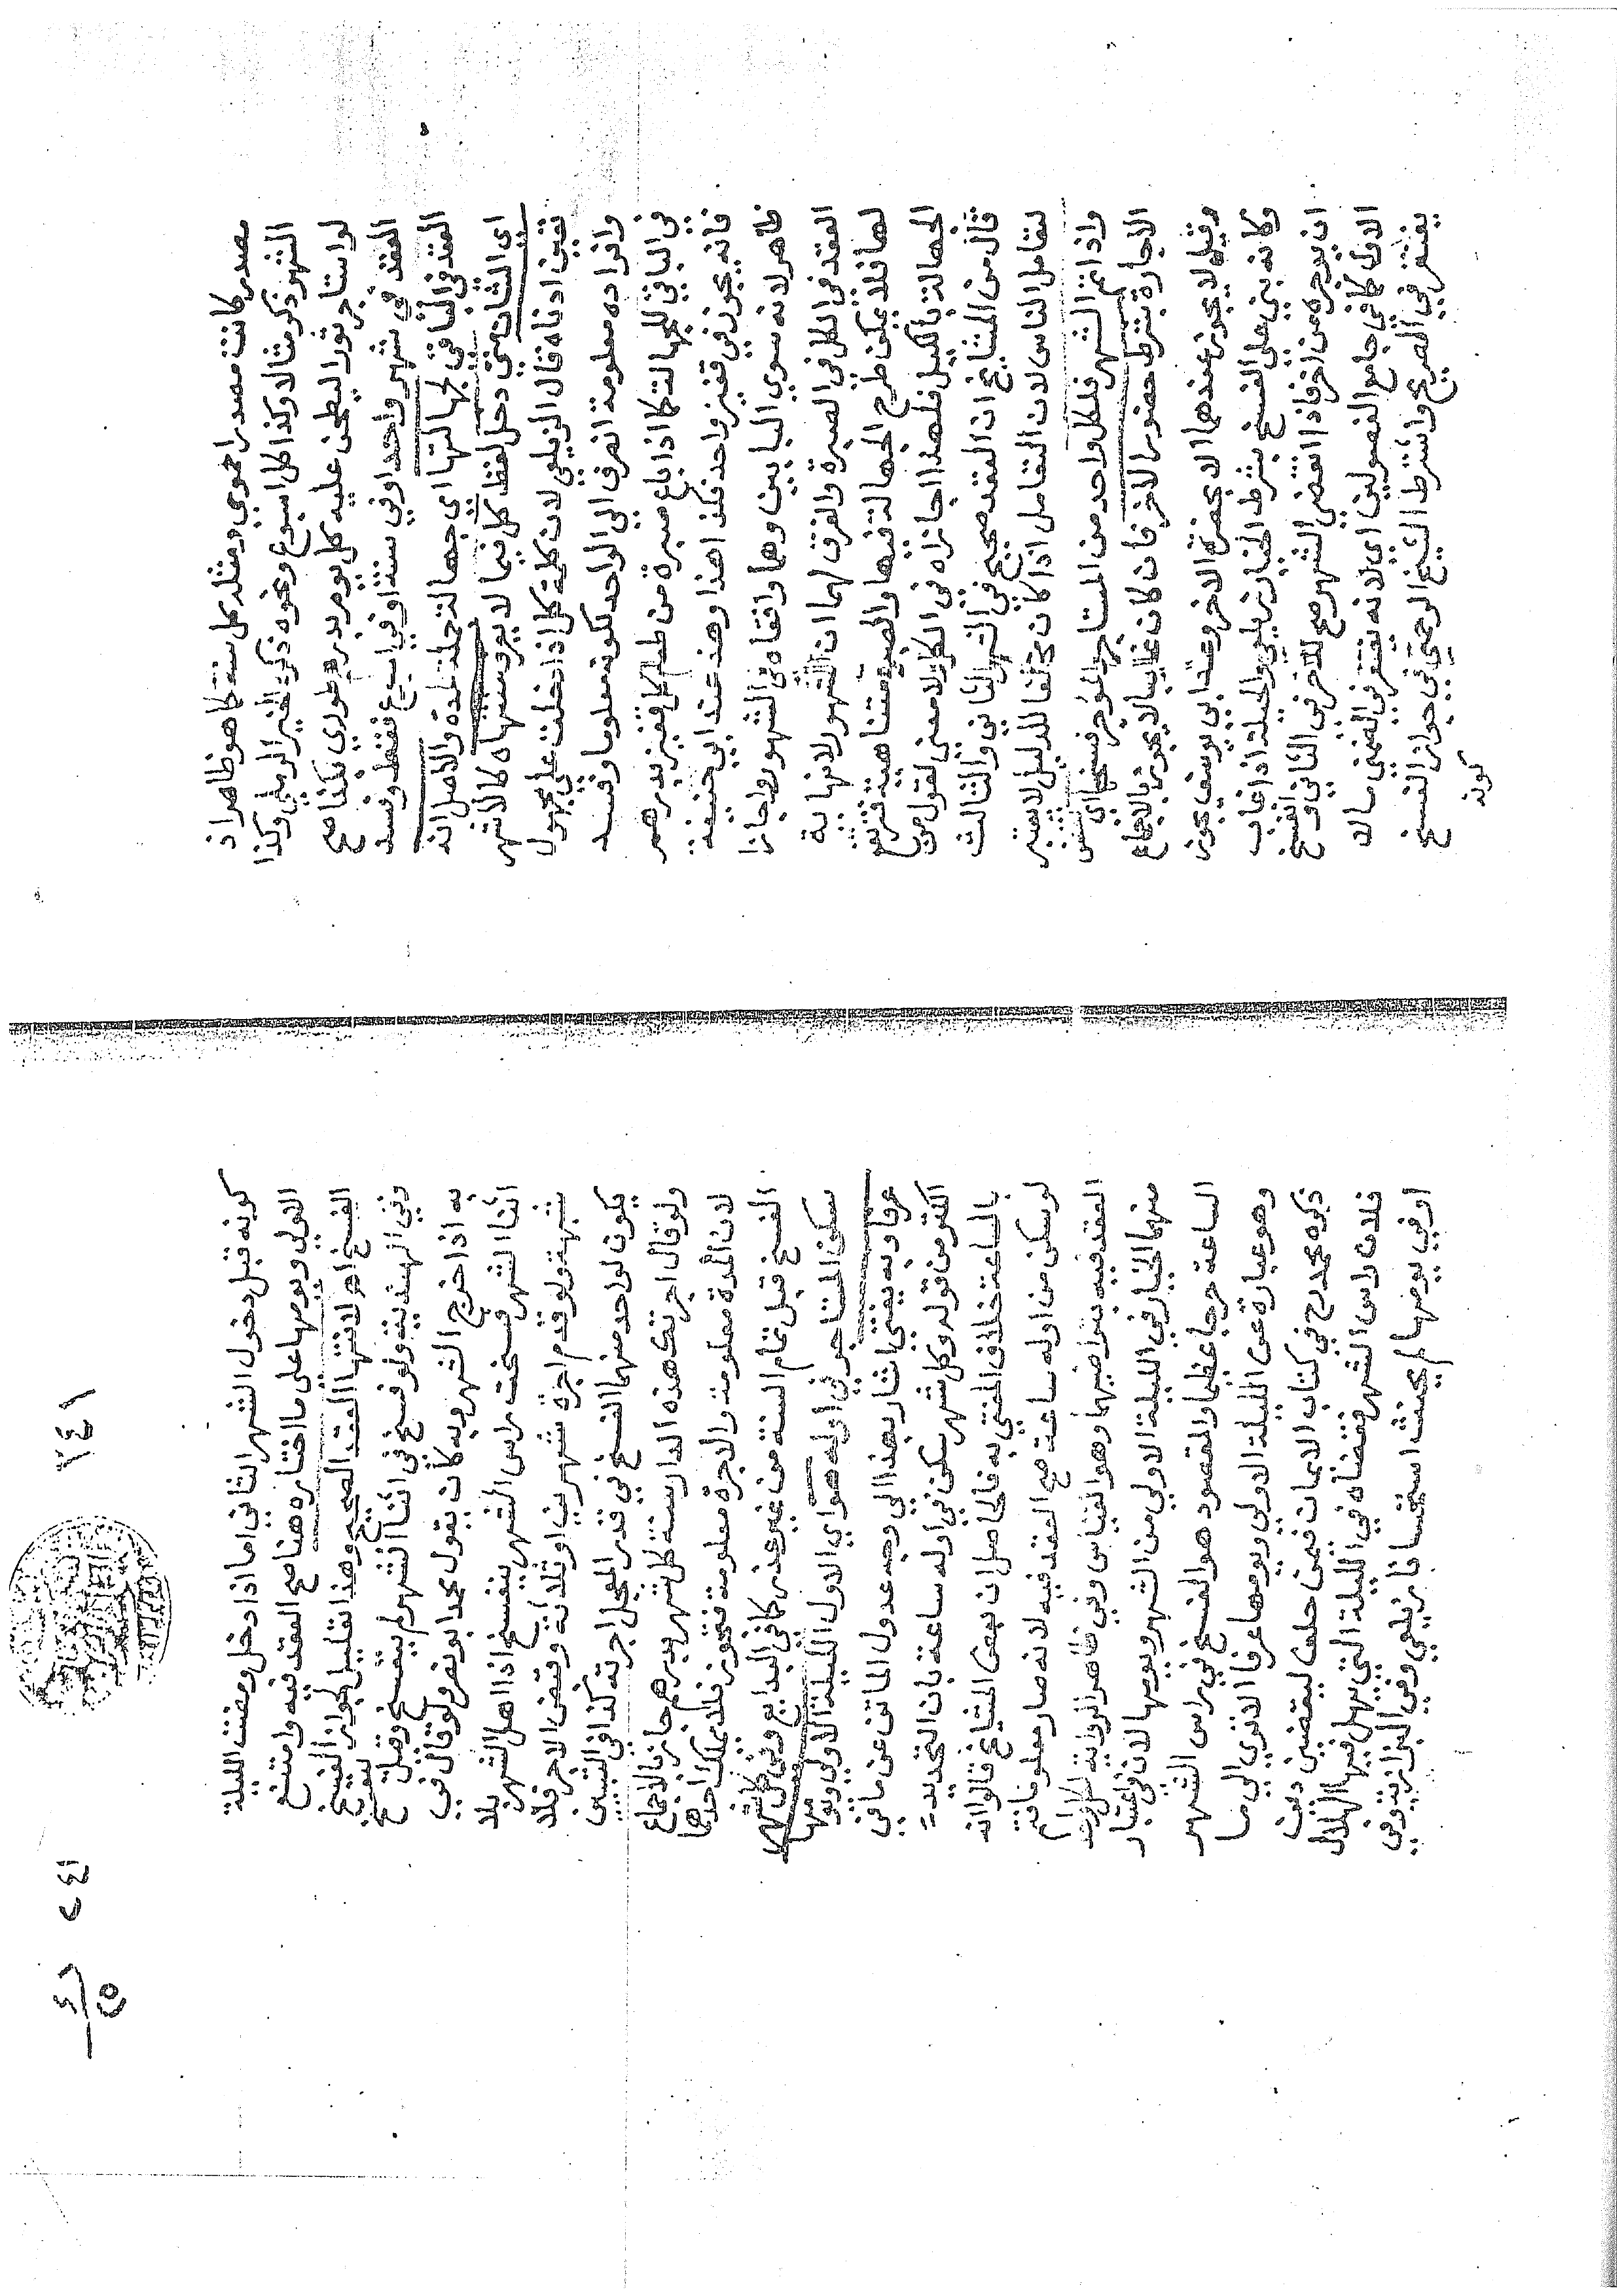 مصدر كانت مصدرا حموي ومثله كل سنة كما هو ظاهر اذ
الشهر ذكر مثالا وكذا كل اسبوع ونحوه ذكره الخير الرملي وكذا
لو استاجر ثورا ليطحن عليه كل يوم بدرهم طوري بكذا صح
العقد في شهر واحد او في سنة او في اسبوع فقط وفسد
العقد في الباقي لجهالتها اي جهالة جملة المدة والاصل انه
اي الشان متي دخل لفظ كل فيما لا يعرف منتهاه كالاشهر
تعين ادناه قال الزيلعي لان كلمة كل اذا دخلت علي مجهول
وافراده معلومة انصرف الي الواحد لكونه معلوما وفسد
في الباقي للجهالة كما اذا باع صبرة من طعام كل قفيز بدرهم
فانه يجوز في قفيز واحد فكذا هذا وهذا عند ابي حنيفة
ظاهر لانه سوي البابين وهما وافقاه في الشهور واجازا
العقد في الكل في الصبرة والفرق لهما ان الشهور لا نهاية
لها فلا يمكن طرح الجهالة فيها والصبرة متناهية فترتفع
الجهالة بالكيل فلهذا اجازاه في الكل ولا معني لقول من
قال من المشايخ ان العقد صحيح في الشهر الثاني والثالث
لتعامل الناس لان التعامل اذا كان مخالفا للدليل لا يعتبر
واذا تم الشهر فلكل واحد من المستاجر والموجر فسخها اي
الاجارة بشرط حضور الاخر فان كان غايبا لا يجوز بالاجماع
وقيل لا يجوز عندهما الا بحضرة الاخر وعند ابي يوسف يجوز
وكانه بني علي الفسخ بشرط الخيار زيلعي والحيلة اذا غاب
ان يوجره من اخر فاذا انقضي الشهر صح للاخر في الثاني وانفسخ
الاول كما في جامع الفصولين اي لانه يغتفر في الضمني ما لا
يغتفر في الصريح واشترط الشيخ الرحمتي في جواز الفسخ
كونه
٢٤١
٢٤١
كونه قبل دخول الشهر الثاني اما اذا دخل ومضت الليلة
الاولي ويومها علي ما اختاره هنا صح العقد فيه وامتنع
الفسخ اهـ لانتها العقد الصحيح وهذا تعليل لجواز الفسخ
وفي الهنديه ولو فسخ في اثنا الشهر لم ينفسخ وقيل
به اذا خرج الشهر وبه كان يقول محمد ابو نصر ولو قال في
اثنا الشهر فسخت راس الشهر ينفسخ اذا اهل الشهر بلا
شبهة ولو قدم اجرة شهرين او ثلاثة وقبض الاجر فلا
يكون لواحد منهما الفسخ في قدر المعجل اجرته كذا في التبيين
ولو قال اجرتك هذه الدار سنة كل شهر بدرهم جاز بالاجماع
لان المدة معلومة والاجرة معلومة فتجوز فلا يملك احدهما
الفسخ قبل تمام السنة من غير عذر كما في البدايع وفي كل شهر
سكن المستاجر في اوله هو اي الاول الليلة الاولي ويومها
عرفا وبه يفتي اشار بهذا الي وجه عدول الماتن عن ما في
الكنز من قوله وكل شهر سكن في اوله ساعة بان التحديد
بالساعة خلاف المفتي به فالحاصل ان بعض المشايخ قالوا انه
لو سكن من اوله ساعة صح العقد فيه لانه صار معلوما فتم
العقد فيه بتراضيهما وهو القياس وفي ظاهر الرواية لكل واحد
منهما الخيار في الليلة الاولي من الشهر ويومها لان في اعتبار
الساعة حرجا عظيما والمقصود هو الفسخ في راس الشهر
وهو عبارة عن الليلة الاولي ويومها عرفا الا تري الي ما
ذكره محمد رح في كتاب الايمان فيمن حلف ليقضين دين
فلان راس الشهر فقضاه في الليلة التي يهل فيها الهلال
او في يومها لم يحنث استحسانا زيلعي وفي البزازية وفي